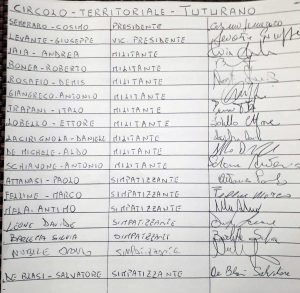 CIRCOLO - TERRITORIALE - TUTURANO
SEMERARO - COSIMO PRESIDENTE
LEVANTE - GIUSEPPE VIC. PRESIDENTE
JAIA - ANDREA MILITANTE
BONEA - ROBERTO MILITANTE
ROSAFIO - DENIS MILITANTE
GIANGRECO - ANTONIO MILITANTE
TRAPANI - ITALO MILITANTE
LOBELLO - ETTORE MILITANTE
LACIRIGNOLA - DANIELE MILITANTE
DE MICHELE - ALDO MILITANTE
SCHIAVONE - ANTONIO MILITANTE
ATTANASI - PAOLO SIMPATIZZANTE
FELLINE - MARCO SIMPATIZZANTE Felline Marco
MELA - ANTIMO SIMPATIZZANTE
LEONE DAVIDE SIMPATIZZANTE
BARLETTA SILVIA SIMPATIZZANTE
NOBILE SIMPATIZZANTE
DE BLASI - SALVATORE SIMPATIZZANTE De Blasi Salvatore